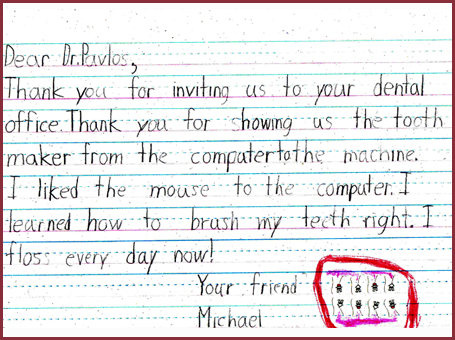 Dear Dr.Pavlos,
Thank you for inviting us to your dental
office.Thank you for showing us the tooth
maker from the computertothe machine.
I liked the mouse to the computer.I
learned how to brush my teeth right.I
floss every day now!
Your friend
Michael